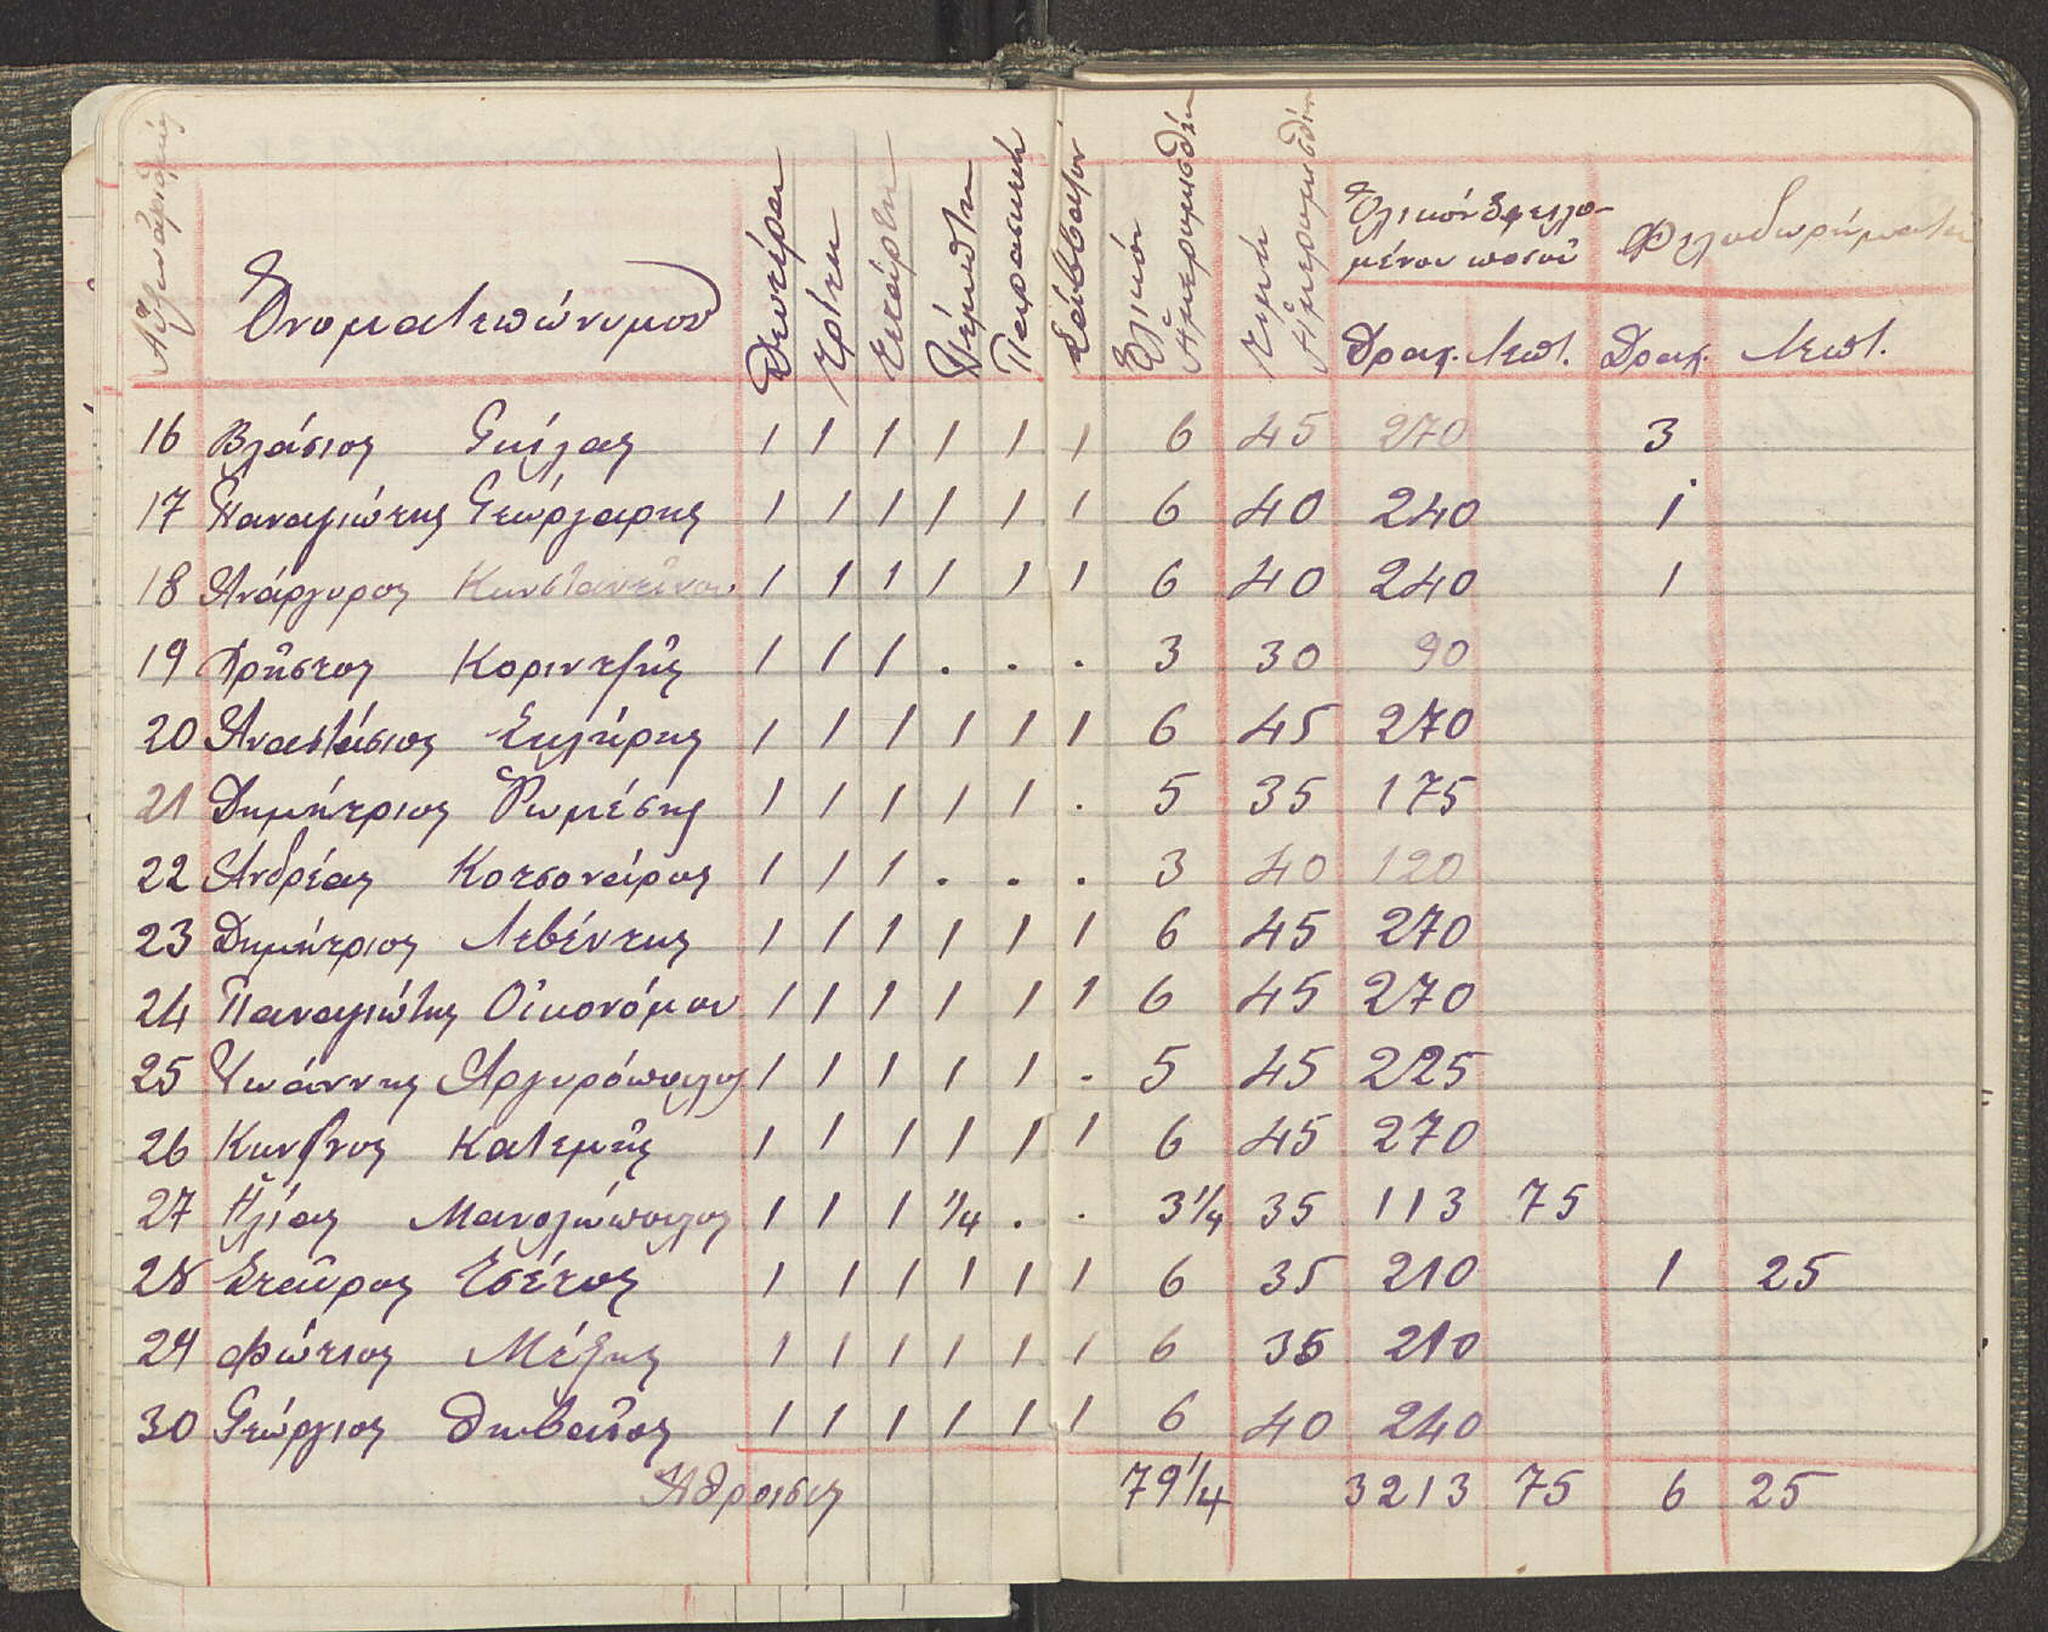 Αὔξων ἀριθμός Ὀνοματεπώνυμον Δευτέρα Τρίτη Τετάρτη Πέμπτη Παρασκευή Σάββατον Ὁλικόν Ἡμερομισθίων Τιμή Ἡμερομισθίου Ὁλικόν ὀφειλο- Φιλοδωρήματα
μένου ποσοῦ
Δραχ. Λεπτ. Δραχ. Λεπτ.
16 Βλάσιος Γκίλας 1 1 1 1 1 1 6 45 270 3
17 Παναγιώτης Γεώργαρης 1 1 1 1 1 1 6 40 240 1
18 Ἀνάργυρος Κωνσταντίνου 1 1 1 1 1 1 6 40 240 1
19 Χρῆστος Κοριντζῆς 1 1 1 . . . 3 30 90
20 Ἀναστάσιος Σκλήρης 1 1 1 1 1 1 6 45 270
21 Δημήτριος Ῥωμέσης 1 1 1 1 1 . 5 35 175
22 Ἀνδρέας Κοτσονάρος 1 1 1 . . . 3 40 120
23 Δημήτριος Λεβέντης 1 1 1 1 1 1 6 45 270
24 Παναγιώτης Οἰκονόμου 1 1 1 1 1 1 6 45 270
25 Ἰωάννης Ἀργυρόπουλος 1 1 1 1 1 . 5 45 225
26 Κων/νος Κατεμῆς 1 1 1 1 1 1 6 45 270
27 Ἠλίας Μανολόπουλος 1 1 1 1/4 . . 3 1/4 35 113 75
28 Σταῦρος Τσέτος 1 1 1 1 1 1 6 35 210 1 25
29 Φώτιος Μέξης 1 1 1 1 1 1 6 35 210
30 Γεώργιος Θηβαῖος 1 1 1 1 1 1 6 40 240
Ἄθροισις 79 1/4 3213 75 6 25